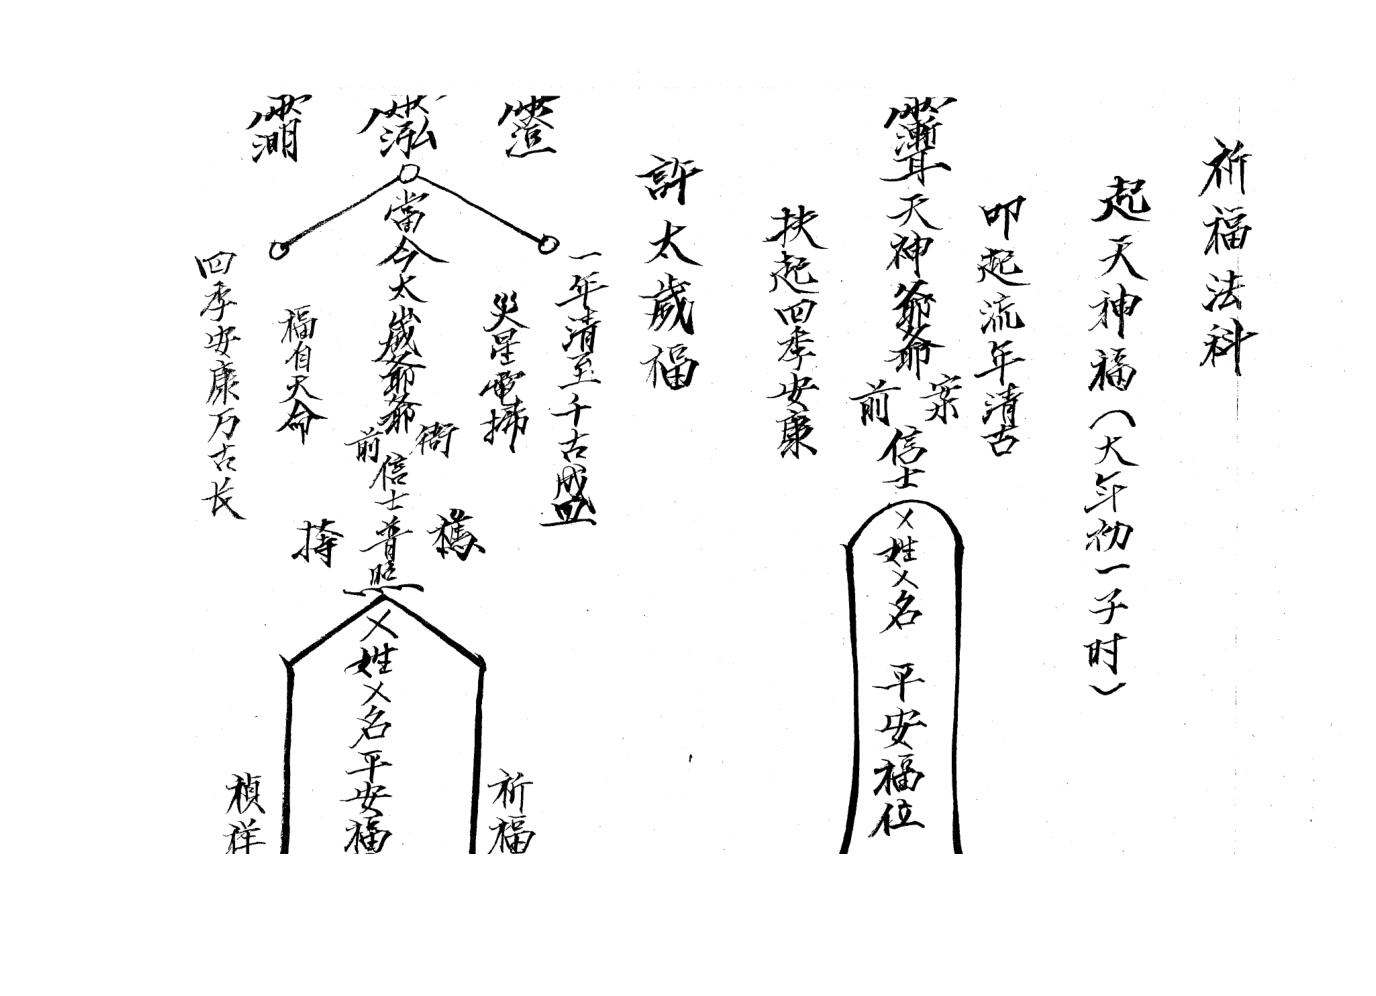 祈福法科
起天神福（大年初一子时）
叩起流年清吉
天神爷爷案前信士
乂姓乂名 平安福位
扶起四季安康
許太歲福
一年清至千古盛
災星電掃
當今太歲爺爺衙前信士普照
乂姓乂名平安福
福自天命
四季安康万古长
祈福
禎祥